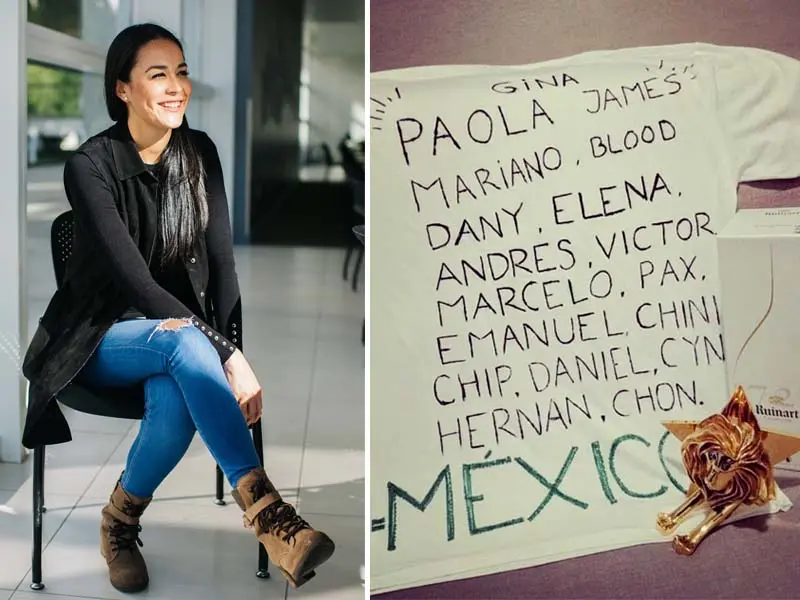 GiNA
PAOLA JAMES
MARiANO, BLOOD
DANY, ELENA,
ANDRES, VICTOR
MARCELO, PAX,
EMANUEL, CHINI
CHIP, DANIEL, CYN
HERNAN, CHON.
=MÉXICO
Ruinart